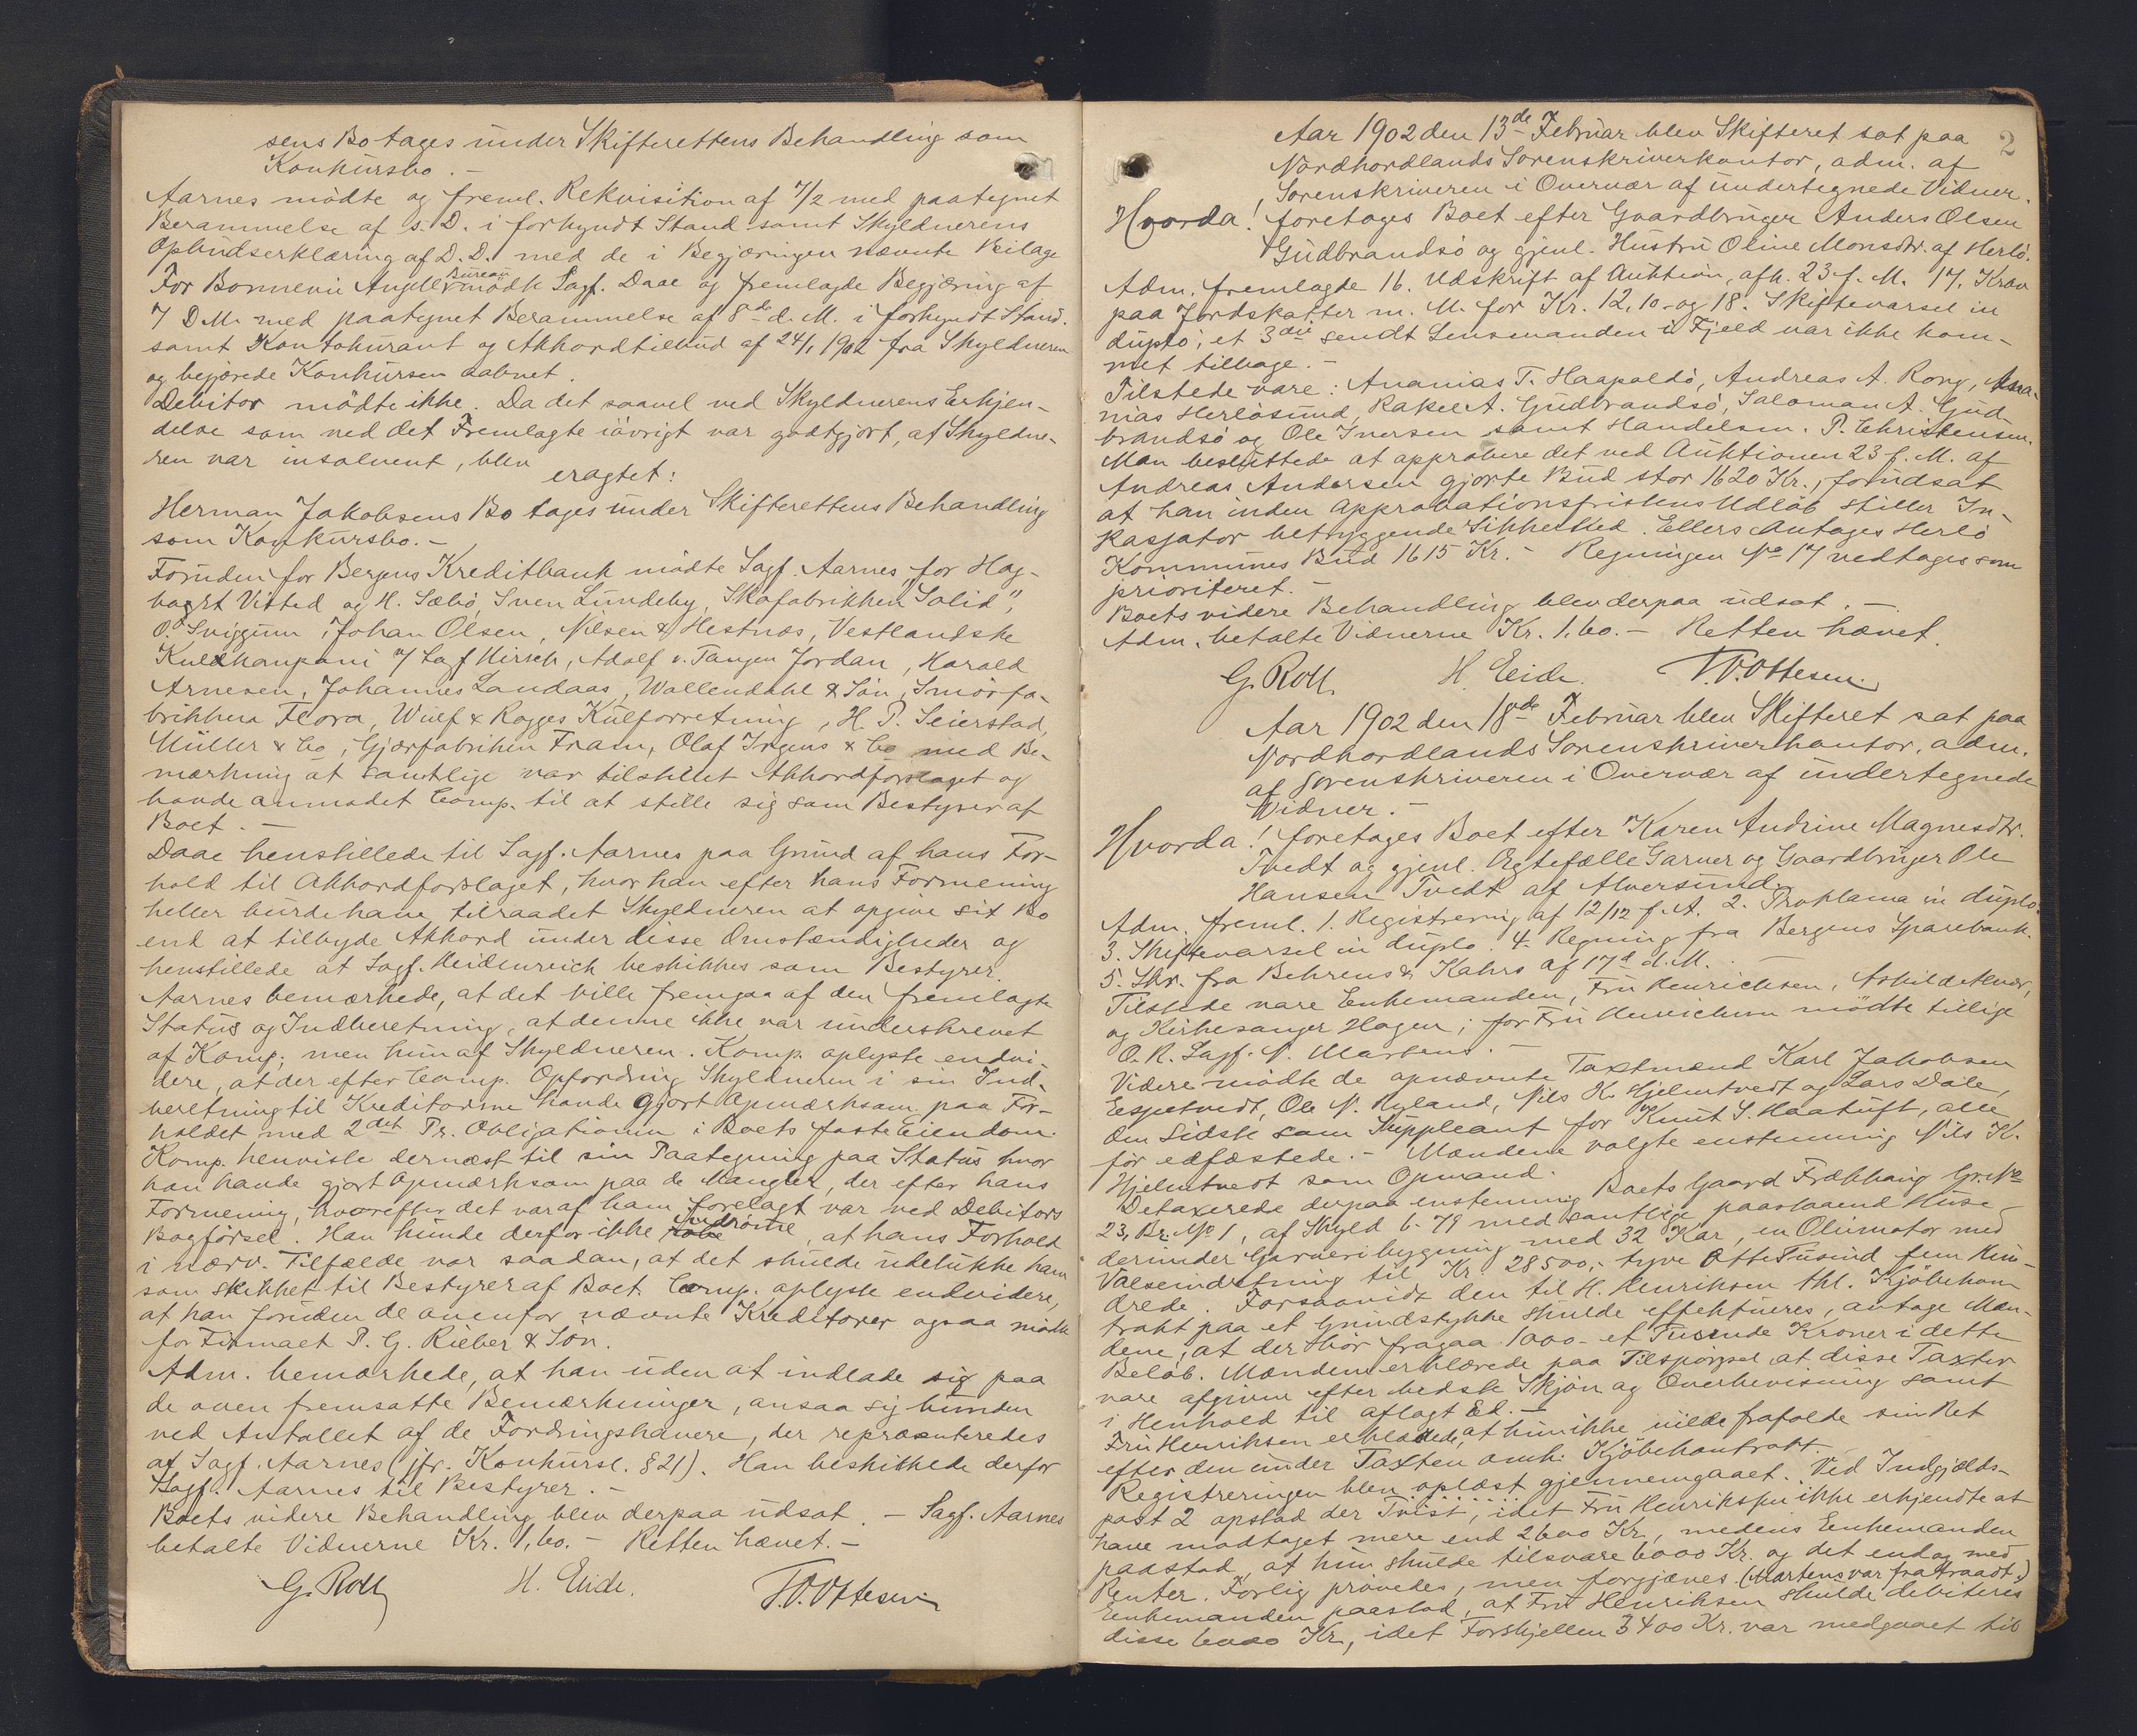 sens Bo tages under Skifterettens Behandling som
Konkursbo. -
Aarnes mödte og freml. Rekvisition af 7/2 med paategnet
Berammelse af s. D. i forkyndt Stand samt Skyldnerens
Opbudserklæring af D. D. med de i Begjæringen nævnte Beilage
For Bonnevie Angells Bureau mödte Sagf. Daae og fremlagde Begjæring af
7 D. M. med paategnet Berammelse af 8de d. M. i forkyndt Stand.
samt Kontokurant og Akkordtilbud af 24/1 1902 fra Skyldneren
og begjærede Konkursen aabnet.
Debitor mödte ikke. Da det saavel ved Skyldnerens Erkjen-
delse som ved det Fremlagte iövrigt var godtgjort, at Skyldne-
ren var insolvent, blev
eragtet:
Herman Jakobsens Bo tages under Skifterettens Behandling
som Konkursbo. -
Foruden for Bergens Kreditbank mödte Sagf. Aarnes, for Hag-
bart Visted og H. Sæbö, Sven Lundeby, Skofabrikken "Solid",
O. Sviggum, Johan Olsen, Nilsen & Hestnæs, Vestlandske
Kulkompani v/ Sagf Hirsch, Adolf v. Tangen Jordan, Harald
Arnesen, Johannes Landaas, Wallendahl & Sön, Smörfa-
brikken Flora, Wulf & Rogges Kulforretning, H. P. Seierstad,
Müller & Co, Gjærfabriken Fram, Olaf Irgens & Co med Be-
mærkning at samtlige var tilstillet Akkordforslaget og
havde anmodet Comp. til at stille sig som Bestyrer af
Boet. -
Daae henstillede til Sagf. Aarnes paa Grund af hans For-
hold til Akkordforslaget, hvor han efter hans Formening
heller burde have tilraadet Skyldneren at opgive sit Bo
end at tilbyde Akkord under disse Omstændigheder og
henstillede at Sagf. Heidenreich beskikkes som Bestyrer.
Aarnes bemærkede, at det ville fremgaa af den fremlagte
Status og Indberetning, at denne ikke var underskrevet
af Komp; men kun af Skyldneren. Komp. oplyste endvi-
dere, at der efter Comp. Opfordring Skyldneren i sin Ind-
beretning til Kreditorerne havde gjort Opmærksom paa For-
holdet med 2det Pr. Obligationen i Boets faste Eiendom.
Komp. henviste dernæst til sin Paategning paa Status hvor
han havde gjort Opmærksom paa de Mangler, der efter hans
Formening, hvorefter det var af ham forelagt var ved Debitors
Bogförsel. Han kunde derfor ikke indrömme, at hans Forhold
i nærv. Tilfælde var saadan, at det skulde udelukke ham
som skikket til Bestyrer af Boet. Comp. oplyste endvidere,
at han foruden de ovenfor nævnte Kreditorer ogsaa mödte
for Firmaet P. G. Rieber & Sön.
Adm. bemærkede, at han uden at indlade sig paa
de oven fremsatte Bemærkninger, ansaa sig bunden
ved Antallet af de Fordringshavere, der repræsenteredes
af Sagf. Aarnes (jfr. Konkursl. § 21). Han beskikkede derfor
Sagf. Aarnes til Bestyrer. -
Boets videre Behandling blev derpaa udsat. - Sagf. Aarnes
betalte Vidnerne Kr. 1,60. - Retten hævet. -
G. Roll H. Eide. T. O. Ottesen
2
Aar 1902 den 13de Februar blev Skifteret sat paa
Nordhordlands Sorenskriverkontor, adm. af
Sorenskriveren i Overvær af undertegnede Vidner.
Hvorda! foretoges Boet efter Gaardbruger Anders Olsen
Gudbrandsö og gjenl. Hustru Oline Monsdtr. af Herlö.
Adm. fremlagde 16. Udskrift af Auktion, afh. 23 f. M. 17. Krav
paa Jordskatter m. M. for Kr. 12,10. og 18. Skiftevarsel in
duplo; et 3die sendt Lensmanden i Fjeld var ikke kom-
met tilbage. -
Tilstede vare: Ananias T. Haapoldö, Andreas A. Rong, Ana-
nias Herlösund, Rakel A. Gudbrandsö, Saloman A. Gud
brandsö og Ole Iversen samt Handelsm. P. Christensen.
Man besluttede at approbere det ved Auktionen 23 f. M. af
Andreas Andersen gjorte Bud stor 1620 Kr., forudsat
at han inden Approbationsfristens Udlöb stiller In-
kassator betryggende Sikkerhed. Ellers antages Herlö
Kommunes Bud 1615 Kr. - Regningen No 17 vedtages som
prioriteret. -
Boets videre Behandling blev derpaa udsat. -
Adm. betalte Vidnerne Kr. 1,60. - Retten hævet.
G. Roll. H. Eide. T. O. Ottesen.
Aar 1902 den 18de Februar blev Skifteret sat paa
Nordhordlands Sorenskriverkontor, adm.
af Sorenskriveren i Overvær af undertegnede
Vidner. -
Hvorda! foretoges Boet efter Karen Andrine Magnesdtr.
Tvedt og gjenl. Egtefælle Garver og Gaardbruger Ole
Hansen Tvedt af Alversund.
Adm. freml. 1. Registrering af 12/12 f. A. 2. Proklama in duplo.
3. Skiftevarsel in duplo. 4. Regning fra Bergens Sparebank.
5. Skr. fra Behrens & Kahrs af 17de d. M. -
Tilstede vare Enkemanden, Fru Henriksen, Askild Alver,
og Kirkesanger Hagen; for Fru Henriksen mödte tillige
O. R. Sagf. N. Martens. -
Videre mödte de opnævnte Taxtmænd Karl Jakobsen
Espetvedt, Ole N. Ryland, Nils K. Hjelmtvedt og Lars Dale,
den Sidste som Suppleant for Knut S. Haatuft, alle
för edfæstede. - Mændene valgte enstemmig Nils K.
Hjelmtvedt som Opmand.
Detaxerede derpaa enstemmig Boets Gaard Frækhaug Gr. No
23, Br. No 1, af Skyld 6.79 med samtlige paastaaend Huse
derunder Garveribygning med 32 Kar, en Oliemotor med
Valseindretning til Kr. 28500,- tyve Otte Tusind fem Hun-
drede. Forsaavidt den til H. Henriksen thl. Kjöbekon
trakt paa et Grundstykke skulde effektueres, antage Mæn-
dene, at der bör fragaa 1000- et Tusinde Kroner i dette
Belöb. Mændene erklærede paa Tilspörgsel at disse Taxter
vare afgivne efter bedste Skjön og Overbevisning samt
i Henhold til aflagt Ed. -
Fru Henriksen erklærede, at hun ikke vilde frafalde sin Ret
efter den under Taxten omh. Kjöbekontrakt.
Registreringen blev oplæst gjennemgaaet. Ved Indgjælds-
post 2 opstod der Tvist, idet Fru Henriksen ikke erkjendte at
have modtaget mere end 2600 Kr., medens Enkemanden
paastod, at hun skulde tilsvare 6000 Kr. og det endog med
Renter. Forlig prövedes, men forgjæves. (Martens var fratraadt.)
Enkemanden paastod, at Fru Henriksen skulde debiteres
disse 6000 Kr, idet Forskjellen 3400 Kr. var medgaaet til